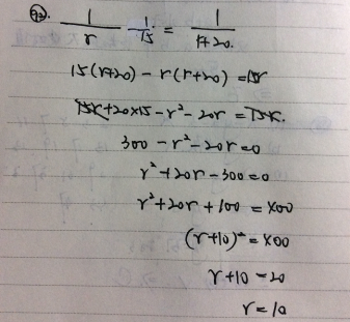 1/r - 1/15 = 1/r+20.
15(r+20) - r(r+20) = 15r
15r + 20×15 - r² - 20r = 15r.
300 - r² - 20r = 0
r² + 20r - 300 = 0
r² + 20r + 100 = 400
(r+10)² = 400
r+10 = 20
r = 10